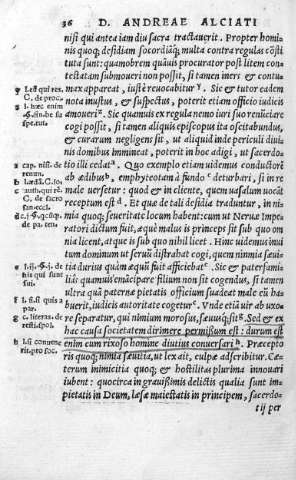 36 D. ANDREAE ALCIATI
nisi qui antea iam diu sacra tractauerit. Propter homi-
nis quoq; desidiam socordiāq; multa contra regulas cōsti
tuta sunt: quamobrem quāuis procurator post litem con-
testatam submoueri non possit, si tamen iners & contu-
max appareat, iuste reuocabitur y. Sic & tutor eadem
nota inustus, & suspectus, poterit etiam officio iudicis
amoueri z. Sic quamuis ex regula nemo iuri suo renūciare
cogi possit, si tamen aliquis episcopus ita oscitabundus,
& curarum negligens sit, ut aliquid inde periculi diuinis
domibus immineat, poterit in hoc adigi, ut sacerdo-
tio illi cedat a. Quo exemplo etiam uidemus conductorē
ab ædibus b, emphyteotam à fundo c deturbari, si in re
male uersetur: quod & in cliente, quem uasalum uocāt
receptum est d. Et quæ de tali desidia traduntur, in ni-
mia quoq; seueritate locum habent: cum ut Neruæ Impera
tori dictum fuit, æquè malus is princeps sit sub quo om
nia licent, atque is sub quo nihil licet. Hinc uidemus inui
tum dominum ut seruū distrahat cogi, quem nimia sæui-
tia durius quàm æquū fuit afficiebat e. Sic & paterfami-
liâs quamuis emācipare filium non sit cogendus, si tamen
ultra quā paternæ pietatis officium suadeat male eū ha-
buerit, iudicis autoritate cogetur f. Vnde etiā uir ab uxo
re separatur, qui nimium morosus, sæuusq; sit g. Sed & ex
hac causa societatem dirimere permissum est: durum est
enim cum rixoso homine diutius conuersari h. Præcepto
ris quoq; nimia sæuitia, ut lex ait, culpæ adscribitur. Cæ
terum inimicitia quoq; & hostilitas plurima innouari
iubent: quocirca in grauißimis delictis qualia sunt im-
pietatis in Deum, læsæ maiestatis in principem, sacerdo-
tij per